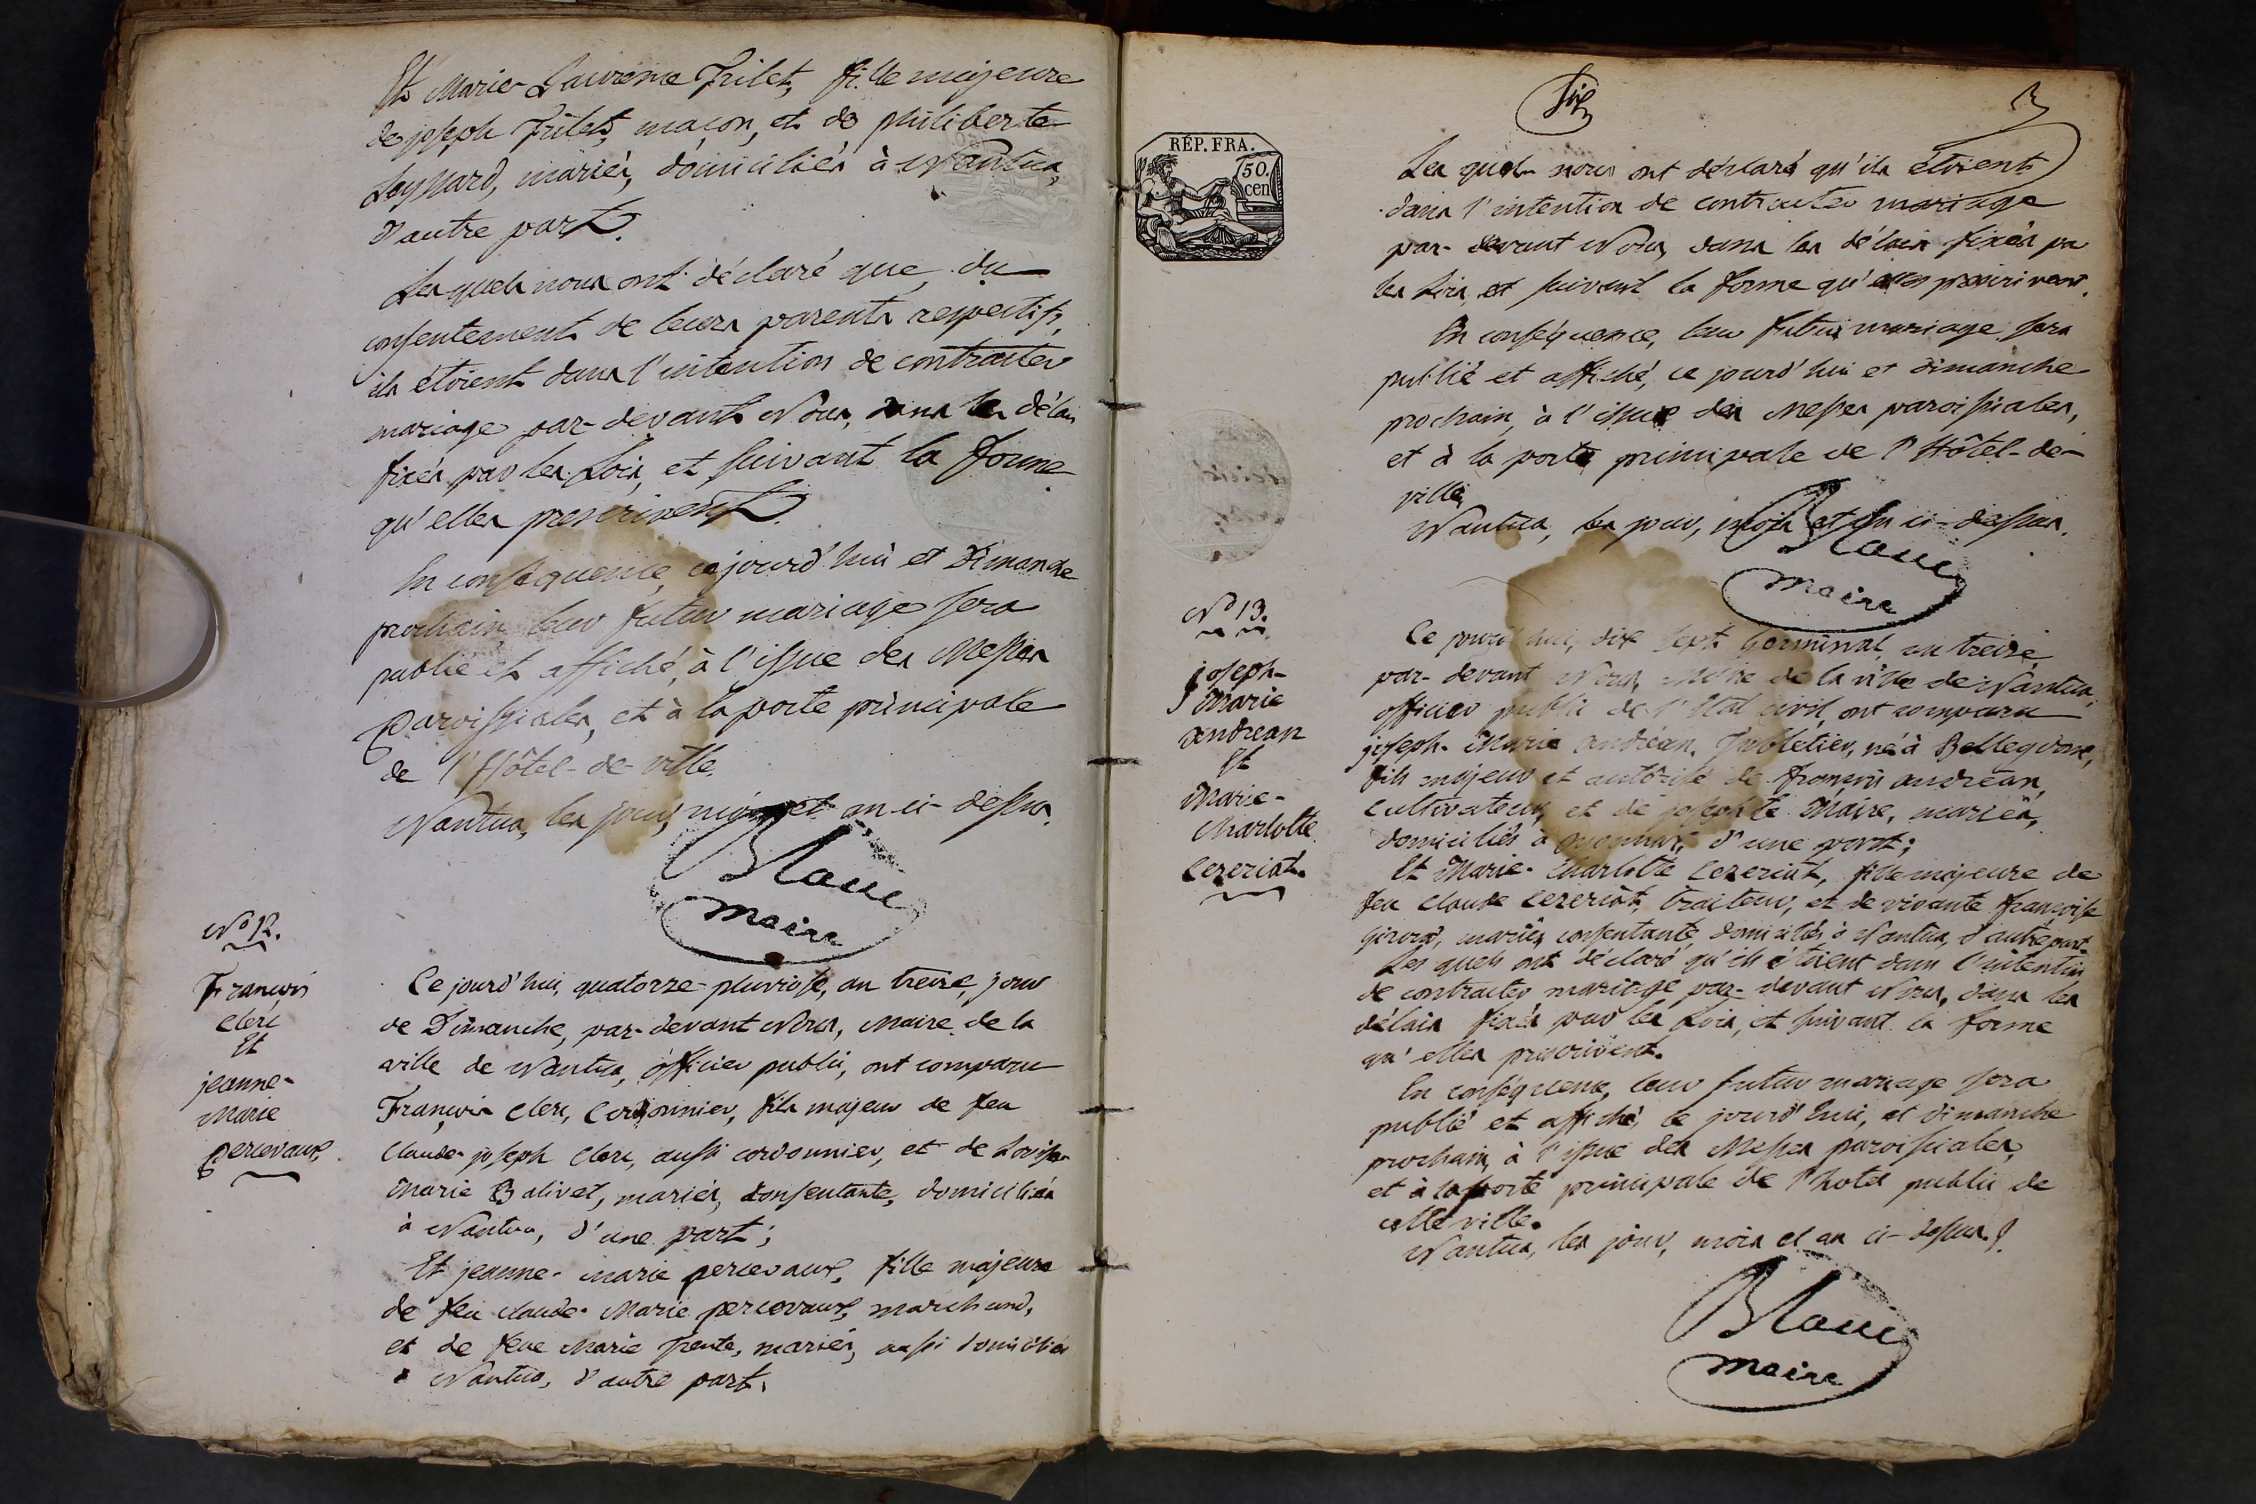 Et Marie Laurence Frilet, fille majeure
de joseph Frilet, maçon, et de philiberte
, mariés, domiciliés à Nantua,
d'autre part.
Lesquels nous ont déclaré que, du
consentement de leurs parents respectifs,
ils étoient dans l'intention de contracter
mariage par-devant Nous, dans les délais
fixés par les Lois, et suivant la forme
qu'elles prescrivent.
En conséquence, ce jourd'hui et Dimanche
prochain, leur futur mariage sera
publié et affiché, à l'issue des Messes
Paroissiales, et à la porte principale
de l'Hôtel-de-ville.
Nantua, les jour, mois et an ci-dessus.
Blanc
maire
No 12.
François
Clerc
Et
jeanne-
Marie
percevaux.
Ce jourd'hui, quatorze pluviose, an treize, jour
de Dimanche, par-devant Nous, Maire de la
ville de Nantua, officier public, ont comparu
François Clerc, Cordonnier, fils majeur de feu
Claude-joseph Clerc, aussi cordonnier, et de Louise-
Marie Balivet, mariés, consentante, domiciliés
à Nantua, d'une part;
Et jeanne-marie percevaux, fille majeure
de feu claude-Marie percevaux, marchand,
et de feue Marie , mariés, aussi domiciliés
à Nantua, d'autre part.
Six
3
RÉP. FRA.
50.
cen
Les quels nous ont déclaré qu'ils étoient
dans l'intention de contracter mariage
par-devant Nous, dans les délais fixés par
les Lois, et suivant la forme qu'elles prescrivent.
En conséquence, leur futur mariage sera
publié et affiché, ce jourd'hui et dimanche
prochain, à l'issue des Messes paroissiales,
et à la porte principale de l'Hôtel-de-
ville,
Nantua, les jour, mois et an ci-dessus.
Blanc
maire
No 13.
joseph-
Marie
andréan
Et
Marie-
Charlotte
Cezeriat.
Ce jourd'hui, dix sept Germinal, an treize,
par-devant Nous, Maire de la ville de Nantua,
officier public de l'Etat civil, ont comparu
joseph-Marie andréan, Tabletier, né à Bellegarde,
fils majeur et autorisé de françois andréan,
cultivateur, et de josephte Maire, mariés,
domiciliés à oyonnax, d'une part;
Et Marie-Charlotte Cezeriat, fille majeure de
feu claude cezeriat, traiteur, et de vivante françoise
girard, mariés, consentante, domiciliés à Nantua, d'autre part.
Les quels ont déclaré qu'ils étoient dans l'intention
de contracter mariage par-devant Nous, dans les
délais fixés par les Lois, et suivant la forme
qu'elles prescrivent.
En conséquence, leur futur mariage sera
publié et affiché, ce jourd'hui, et dimanche
prochain, à l'issue des Messes paroissiales,
et à la porte principale de l'hotel public de
cette ville.
Nantua, les jour, mois et an ci-dessus.
Blanc
maire